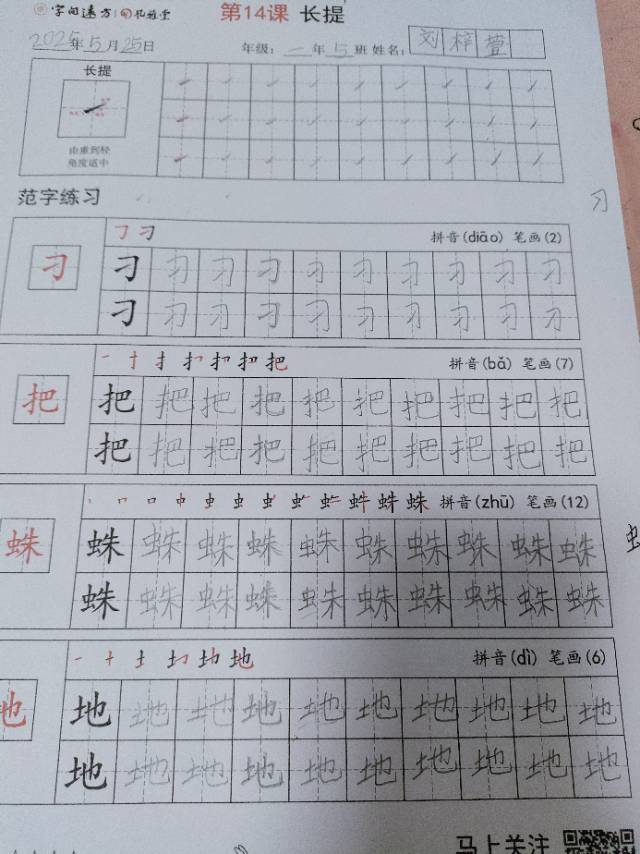 字间速方 孔雅堂 第14课 长提
2025年5月25日 年级：一年5班 姓名：刘梓萱
长提
由重到轻
角度适中
范字练习
刁 拼音(diāo) 笔画(2)
刁 刁 刁 刁 刁 刁 刁 刁 刁 刁 刁
刁 刁 刁 刁 刁 刁 刁 刁 刁 刁
把 拼音(bǎ) 笔画(7)
把 把 把 把 把 把 把 把 把 把 把
把 把 把 把 把 把 把 把 把 把
蛛 拼音(zhū) 笔画(12)
蛛 蛛 蛛 蛛 蛛 蛛 蛛 蛛 蛛 蛛 蛛
蛛 蛛 蛛 蛛 蛛 蛛 蛛 蛛 蛛 蛛
地 拼音(dì) 笔画(6)
地 地 地 地 地 地 地 地 地 地 地
地 地 地 地 地 地 地 地 地 地
马上关注